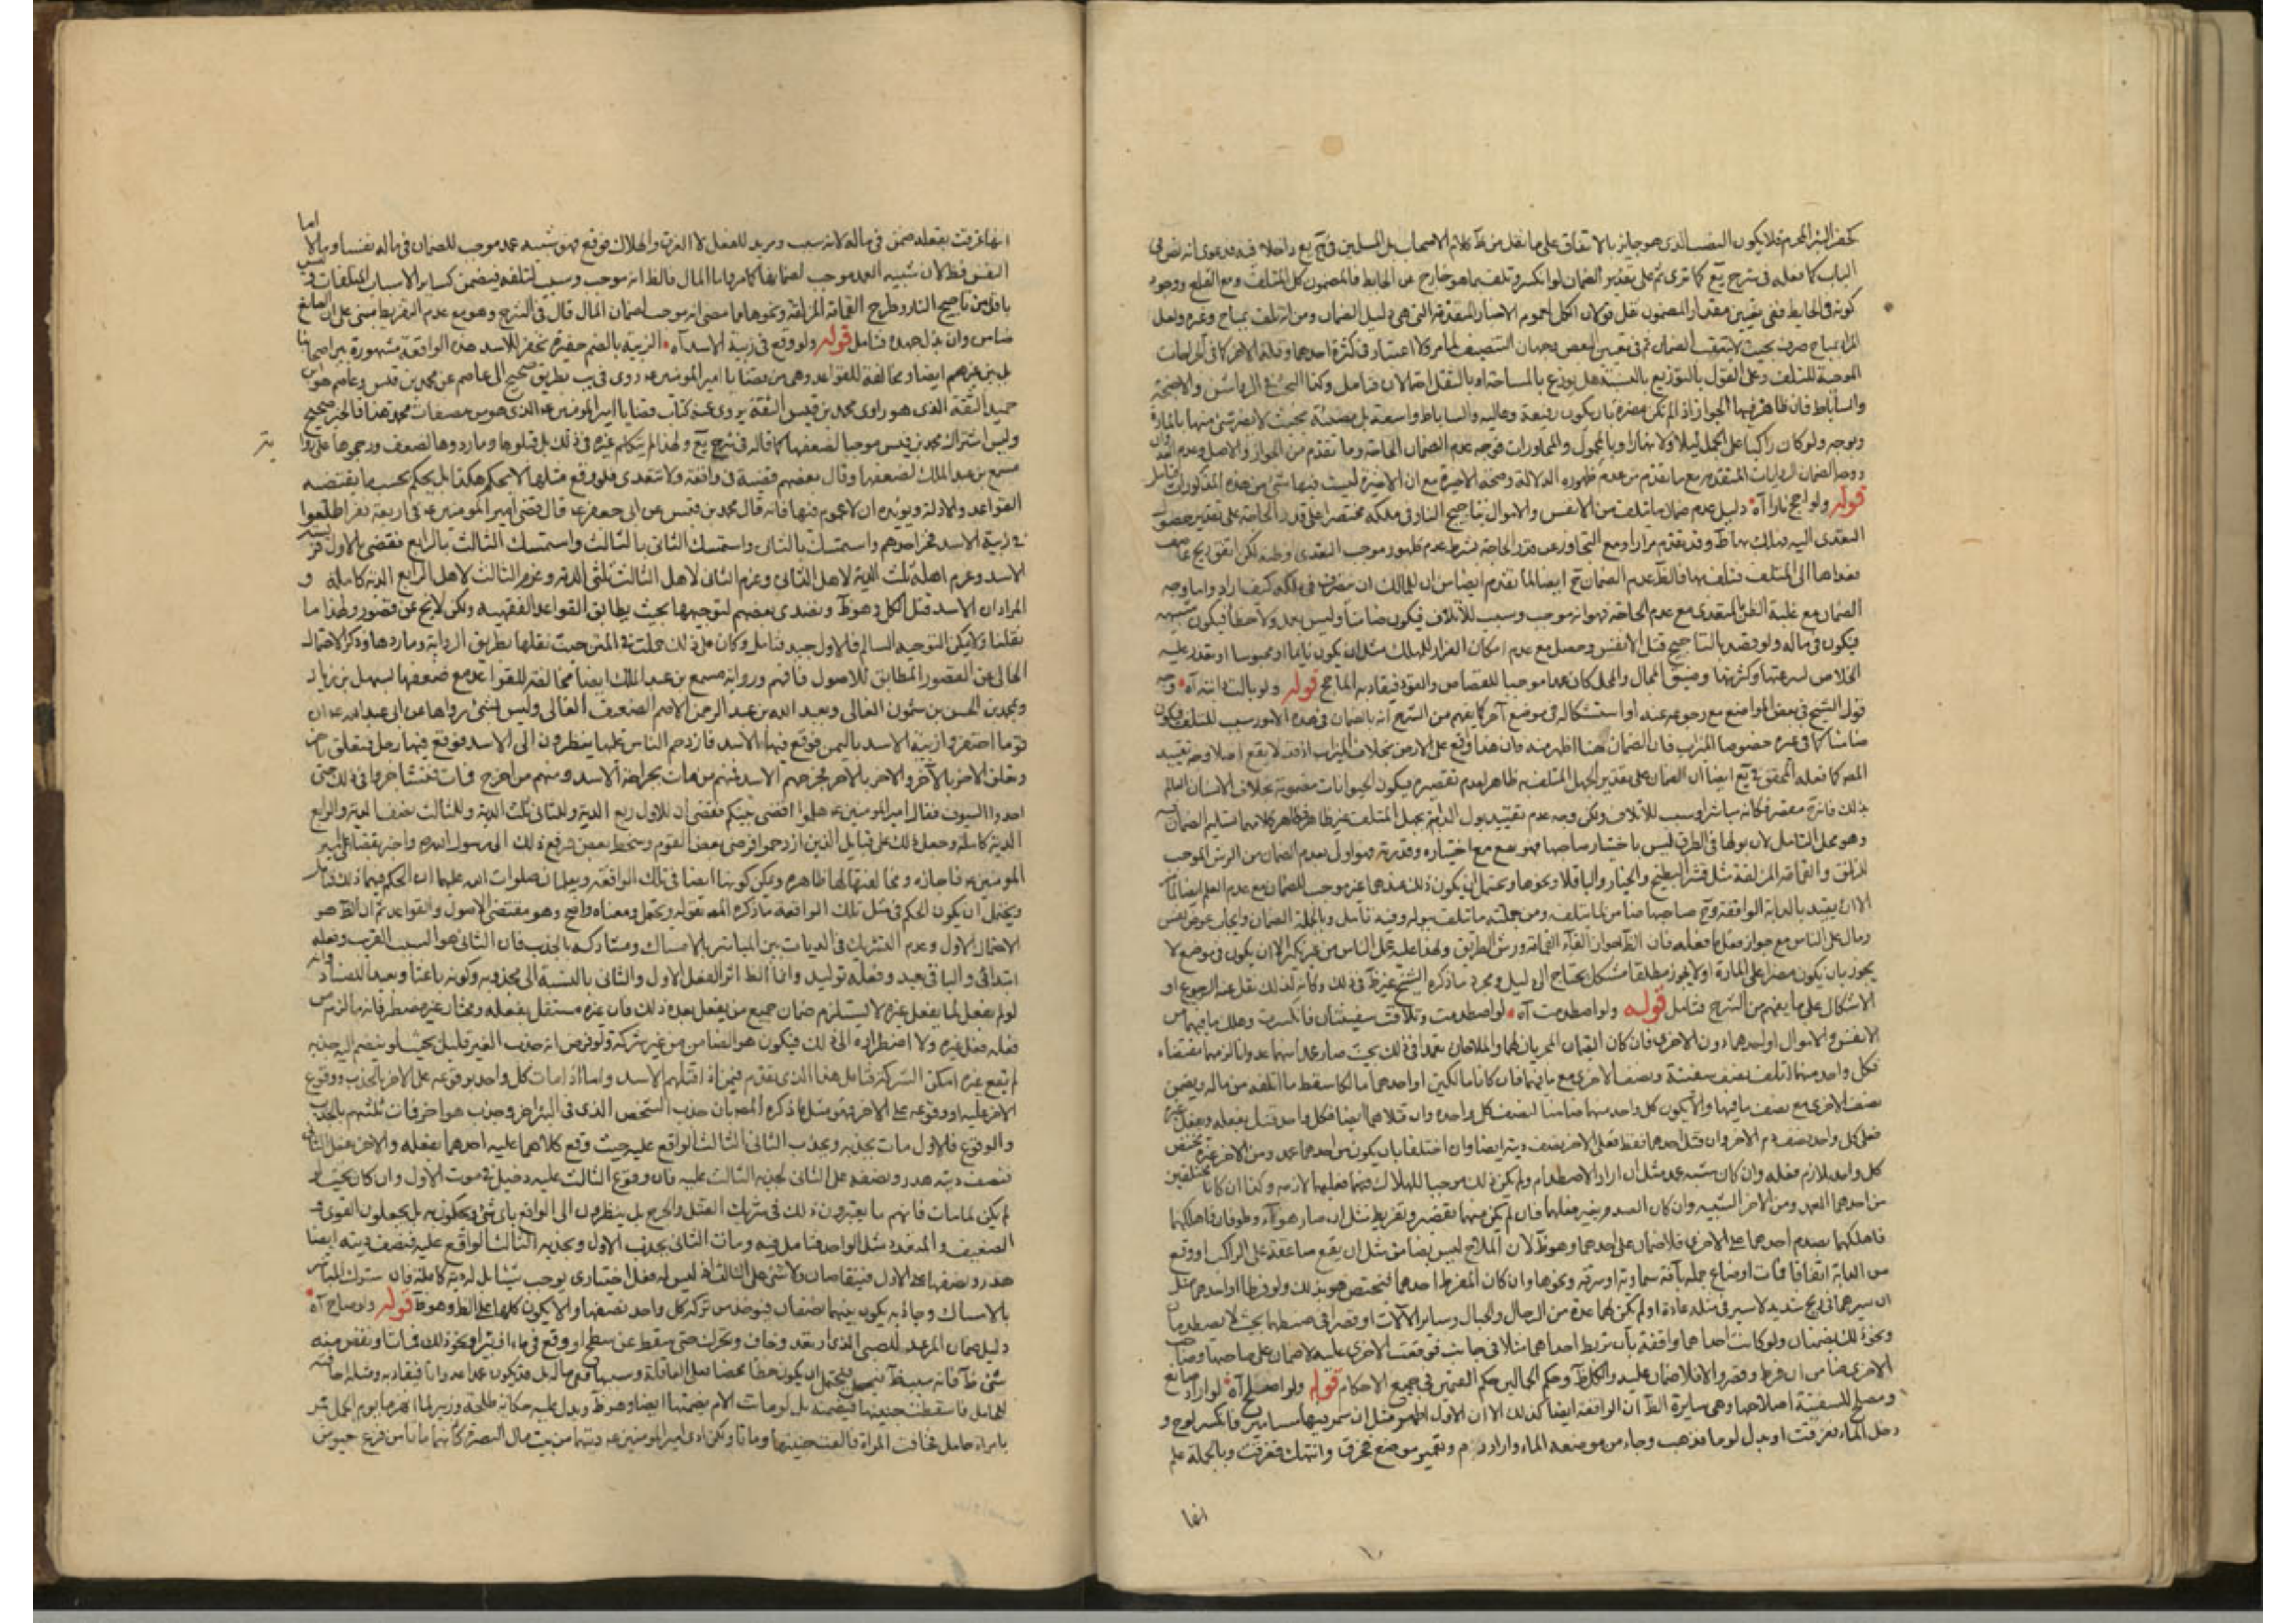 كحفر البئر المحرم فلا يكون النصب الذي هو جايز بالاتفاق على ما نقل من كلام الاصحاب بل المسلمين في داخلا فيه فدعوى انه نص في
الباب كما فعله في شرح كما ترى ثم على تقدير الضمان لو انكسر وتلف بما هو خارج عن الحايط فالمضمون كل المتلف ومع القلع ووجود
كونه في الحايط ففي تعيين مقدار المضمون نقل قولان الكل لعموم الاخبار المتقدمة التي هي دليل الضمان ومن انه تلف بمباح وغيره ولعل
المراد بمباح صرف بحيث لا يتعقب الضمان ثم في تعيين البعض وجهان التنصيف لما مر ولا اعتبار في كثرة احدهما وقلة الاخر كما في الجراحات
الموجبة للتلف وعلى القول بالتوزيع بالنسبة هل يوزع بالمساحة او بالثقل احتمالان فتامل وكذا البحث في الرواشن والاجنحة
والساباط فان ظاهرهم فيها الجواز اذا لم تكن مضرة بان يكون رفيعة وعالية والساباط واسعة بل مضيئة بحيث لا يضر شئ منها بالمارة
وبوجه ولو كان راكبا على الجمل ليلا ولا نهارا وبالحمول والمحاورات فوجه عدم الضمان الحاجة وما تقدم من الجواز والاصل وعدم
ووجه الضمان الروايات المتقدمة مع ما تقدم من عدم ظهور الدلالة وصحة الاخيرة مع ان الاخيرة ليست فيها شئ من هذه المذكورات فتامل
قوله ولو اجج نارا آه دليل عدم ضمان ما تلف من الانفس والاموال بتاجيج النار في ملكه مختصرا على قدر الحاجة على تقدير
التعدي اليه في ملك وقد تقدم مرارا ومع التجاوز عن قدر الحاجة بشرط عدم ظهور موجب التعدي وظنه لكن اتفق ريح عاصف
بعداها الى المتلف فتلف بها فالظ عدم الضمان ايضا لما تقدم ايضا من ان للمالك ان يتصرف في ملكه كيف اراد واما وجه
الضمان مع غلبة الظن بالتعدي مع عدم الحاجة فهو انه موجب وسبب للاتلاف فيكون ضامنا وليس بعمد ولا خطأ فيكون شبيه
فيكون في ماله ولو قصد بالتاجيج قتل الانفس وحصل مع عدم امكان الفرار للهالك مثل ان يكون نايما او محبوسا او تعذر عليه
الخلاص لسرعتها وكثرتها وضيق المجال والمحل كان عمدا موجبا للقصاص والقود فيقاد به المؤجج قوله ولو بالت دابته آه
قول الشيخ في بعض المواضع مع رجوعه عنه او استشكاله في موضع آخر كما يفهم من الشرح انه بالضمان في هذه الامور سبب للمتلف فيكون
ضامنا كما في غيره خصوصا الميزاب فان الضمان هنا اظهر منه فان هذا وقع على الارض بخلاف الميزاب اذ قد لا يقع اصلا وجه تقييد
المص كما فعله المحقق في ايضا ان الضمان على تقدير الجهل المتلف به ظاهر لعدم تقصيره فيكون الحيوانات مضمونة بخلاف الانسان العالم
بذلك فانه مقصر فكانه مباشر او سبب للاتلاف ولكن وجه عدم تقييد بول الدابة بجهل المتلف غير ظاهر فظاهر كلامهما تسليم الضمان
وهو محل التامل لان بولها في الطرق ليس باختيار صاحبها فهو يقع مع اختياره وقدرته فهو اولى بعدم الضمان من الرش الموجب
للزلق والقمامة المزلقة مثل قشر البطيخ والخيار والباقلا ونحوها ويحتمل ان يكون ذلك عندهما غير موجب للضمان مع عدم العلم ايضا
الا ان يقيد بالدابة الواقفة صاحبها ضامن لما تتلفه ومن جملته ما تلف ببوله وفيه تامل وبالجملة الضمان وايجاب عوض نفس
ومال على الناس مع جواز فعل ما فعله فان الظ جواز القاء القمامة ورش الطريق ولهذا عليه عمل الناس من غير نكير الا ان يكون في موضع لا
يجوز بان يكون مضرا على المارة او لا يجوز مطلقا مشكل يحتاج الى دليل ومجرد ما ذكره الشيخ غير في ذلك وكانه لذلك نقل عنه الرجوع او
الاشكال على ما يفهم من الشرح فتامل قوله ولو اصطدمت آه لو اصطدمت وتلاقت سفينتان فانكسرت وهلك ما فيهما من
الانفس والاموال او احدهما دون الاخرى فان كان القيمان المجريان لهما والملاحان تعمدا في ذلك بحيث صار عمدا منهما عدوانا لزمهما مقتضاه
فكل واحد منهما اتلف نصف سفينة ونصف الاخرى مع ما فيهما فان كانا مالكين او احدهما مالكا سقط ما اتلفه من ماله ويضمن
نصف الاخرى مع نصف ما فيها والا يكون كل واحد منهما ضامنا لنصف كل واحدة وان قتلا هما ايضا فكل واحد قتل بفعله وبفعل غيره
فعلى كل واحد نصف دم الاخر وان قتل احدهما فقط فعلى الاخر نصف ديته ايضا وان اختلفا بان يكون من احدهما عمد ومن الاخر غيره يختص
كل واحد بلازم فعله وان كان شبه عمد مثل ان ارادا الاصطدام ولم يكن ذلك موجبا للهلاك فيهما فعليهما لازمه وكذا ان كانا مختلفين
من احدهما العمد ومن الاخر الشبيه وان كان الصدم بغير فعلهما فان لم يكن منهما تقصير وتفريط مثل ان صار هواء وطوفان فاهلكهما
فاهلكهما بصدم احدهما على الاخرى فلا ضمان على احدهما وهو ظ لان الملاح ليس بضامن مثل ان يقع صاعقة على الراكب او وقع
من الدابة اتفاقا فمات او ضاع جمله بآفة سماوية او سرقة ونحوها وان كان المفرط احدهما فيختص هو بذلك ولو فرطا او احدهما مثل
ان سيرهما في ريح شديد لا سير في مثله عادة او لم يكن لهما عدة من الرجال والحبال وساير الآلات او قصرا في ضبطهما بحيث لا يصطدما
ونحو ذلك يضمنان ولو كانت احداهما واقفة بان تربط احداهما مثلا في جانب فوقعت الاخرى عليه لا ضمان على صاحبها وصاحب
الاخرى ضامن ان فرط وقصر والا فلا ضمان عليه والكل ظ وحكم الحمالين حكم القيمين في جميع الاحكام قوله ولو اصلح آه لو اراد صانع
ومصلح للسفينة اصلاحها وهي سايرة الظ ان الواقفة ايضا كذلك الا ان الاول اظهر مثل ان سمر فيها مسامير فانكسر لوح و
دخل الماء فغرقت او بدل لوحا فذهب وجاء من موضعه الماء واراد ردم وتعمير موضع فخرق وانتهك فغرقت وبالجملة علم
انها
انها غرقت بفعله ضمن في ماله لانه سبب ومريد للفعل لا الغرق والهلاك فوقع فهو شبيه عمد موجب للضمان في ماله نفسا ومالا اما
النفس فظ لان شبيه العمد موجب لضمانها كما مر واما المال فالظ انه موجب وسبب لتلفه فيضمن كساير الاسباب المتلفات وليس
باقل من تاجيج النار وطرح القمامة المزلقة ونحوها مما مضى انه موجب لضمان المال قال في الشرح وهو مع عدم التفريط مبني على ان الصانع
ضامن وان بذل جهده فتامل قوله ولو وقع في زبية الاسد آه الزبية بالضم حفرة تحفر للاسد هذه الواقعة مشهورة بين اصحابنا
بل بين غيرهم ايضا ومخالفة للقواعد وهي من قضايا امير المؤمنين ع روى في يب بطريق صحيح الى عاصم عن محمد بن قيس وعاصم هو ابن
حميد الثقة الذي هو راوي محمد بن قيس الثقة يروي عنه كتاب قضايا امير المؤمنين ع الذي هو من مصنفات محمد هذا فالخبر صحيح
وليس اشتراك محمد بن قيس موجبا لضعفها كما قاله في شرح ولهذا لم يتكلم غيره في ذلك بل قبلوها وما ردوها لضعف ورجحوها على رواية
مسمع بن عبد الملك لضعفها وقال بعضهم قضية في واقعة ولا تتعدى فلو وقع مثلها لا نحكم هكذا بل نحكم بحسب ما يقتضيه
القواعد والادلة ويؤيده ان لا عموم فيها فانه قال محمد بن قيس عن ابي جعفر ع قال قضى امير المؤمنين ع في اربعة نفر اطلعوا
في زبية الاسد فخر احدهم واستمسك بالثاني واستمسك الثاني بالثالث واستمسك الثالث بالرابع فقضى بالاول فريسة
الاسد وغرم اهله ثلث الدية لاهل الثاني وغرم الثاني لاهل الثالث ثلثي الدية وغرم الثالث لاهل الرابع الدية كاملة و
المراد ان الاسد قتل الكل وهو ظ وتصدى بعضهم لتوجيهها بحيث يطابق القواعد الفقهية ولكن لا يخ عن قصور ولهذا ما
نقلنا ولا يمكن التوجيه السالم فالاول جيد فتامل وكان على ذلك حملت في المتن حيث نقلها بطريق الرواية وما ردها وذكر الاحتمال
الخالي عن القصور المطابق للاصول فافهم ورواية مسمع بن عبد الملك ايضا مخالفة للقواعد مع ضعفها بسهل بن زياد
ومحمد بن الحسن بن شمون الغالي وبعبد الله بن عبد الرحمن الاصم الضعيف الغالي وليس بشئ رواها عن ابي عبد الله ع ان
قوما احتفروا زبية الاسد باليمن فوقع فيها الاسد فازدحم الناس عليها ينظرون الى الاسد فوقع فيها رجل فتعلق بآخر
وتعلق الاخر بالآخر والاخر بالاخر فجرحهم الاسد فمنهم من مات بجراحة الاسد ومنهم من اخرج فمات فتشاجروا في ذلك حتى
اخذوا السيوف فقال امير المؤمنين ع هلموا اقضي بينكم فقضى ان للاول ربع الدية وللثاني ثلث الدية وللثالث نصف الدية والرابع
الدية كاملة وجعل ذلك على قبايل الذين ازدحموا فرضي بعض القوم وسخط بعض فرفع ذلك الى رسول الله ص واخبر بقضاء امير
المؤمنين ع فاجازه ومخالفتها لها ظاهرة ويمكن كونها ايضا في تلك الواقعة ويعلمان صلوات الله عليهما ان الحكم فيها ذلك فتامل
ويحتمل ان يكون الحكم في مثل تلك الواقعة ما ذكره المص بقوله ويحتمل ومعناه واضح وهو مقتضى الاصول والقواعد ثم ان الظ هو
الاحتمال الاول وعدم التشريك في الديات بين المباشر بالامساك ومشاركه بالجذب فان الثاني هو السبب القريب وفعله
ابتدائي والباقي بعيد وفعله توليد وانما الظ اثر الفعل الاول والثاني بالنسبة الى مجذوبه وكونه باعثا وبعيدا
لو لم يفعل لما يفعل غيره لا يستلزم ضمان جميع من يفعل بعده ذلك فان غيره مستقل بفعله ومختار غير مضطر فانه ما لزم من
فعله فعل غيره ولا اضطراره الى ذلك فيكون هو الضامن من غير شركة ولو فرض ان جذب الغير قليل بحيث لو ينضم اليه جذبه
لم يقع غيره امكن الشركة فتامل هذا الذي تقدم فيمن اذا قتلهم الاسد واما اذا مات كل واحد بوقوعه على الاخر بالجذب ووقوع
الاخر عليه او وقوعه على الاخر فهو مثل ما ذكره المص بان جذب الشخص الذي في البئر اخر وجذب هو اخر فمات ثلثتهم بالجذب
والوقوع فالاول مات بجذبه وبجذب الثاني الثالث الواقع عليه حيث وقع كلاهما عليه احدهما بفعله والاخر بفعل الثاني
فنصف ديته هدر ونصفه على الثاني لجذبه الثالث عليه فان وقوع الثالث عليه دخيل في موت الاول وان كان بحيث لو
لم يكن لما مات فانهم ما يعتبرون ذلك في شريك القتل والجرح بل ينظرون الى الواقع باي شئ ويحكمون به بل يجعلون القوي
الضعيف والمتعدد مثل الواحد فتامل فيه ومات الثاني بجذب الاول وبجذبه الثالث الواقع عليه فنصف ديته ايضا
هدر ونصفها على الاول فيتقاصان ولا شئ على الثالث اذ ليس له فعل اختياري يوجب شيئا بل له دية كاملة فان شرك المباشر
بالامساك وجاذبه يكون بينهما نصفان فيؤخذ من تركة كل واحد نصفها والا يكون كلها على الظ وهو ظ قوله ولو صاح آه
دليل ضمان المرعد للصبي الذي ارتعد وخاف وتحرك حتى سقط عن سطح او وقع في ماء او بئر او نحو ذلك فمات او نقص منه
شئ ظ فانه سبب ظ فيحتمل ان يكون خطأ محضا فعلى العاقلة وشبيها ففي ماله بل قد يكون عمدا عدوانا فيقاد به ومثله اخافته
للحامل فاسقطت جنينها فيضمنه بل لو ماتت الام يضمنها ايضا وهو ظ ويدل عليه حكاية طلحة وزبير لما انهزما يوم الجمل مر
بامراة حامل فخافت المراة فالقت جنينها وماتا ولكن ادى امير المؤمنين ع ديتهما من بيت مال البصرة كانهما ماتا من فزع جيوش